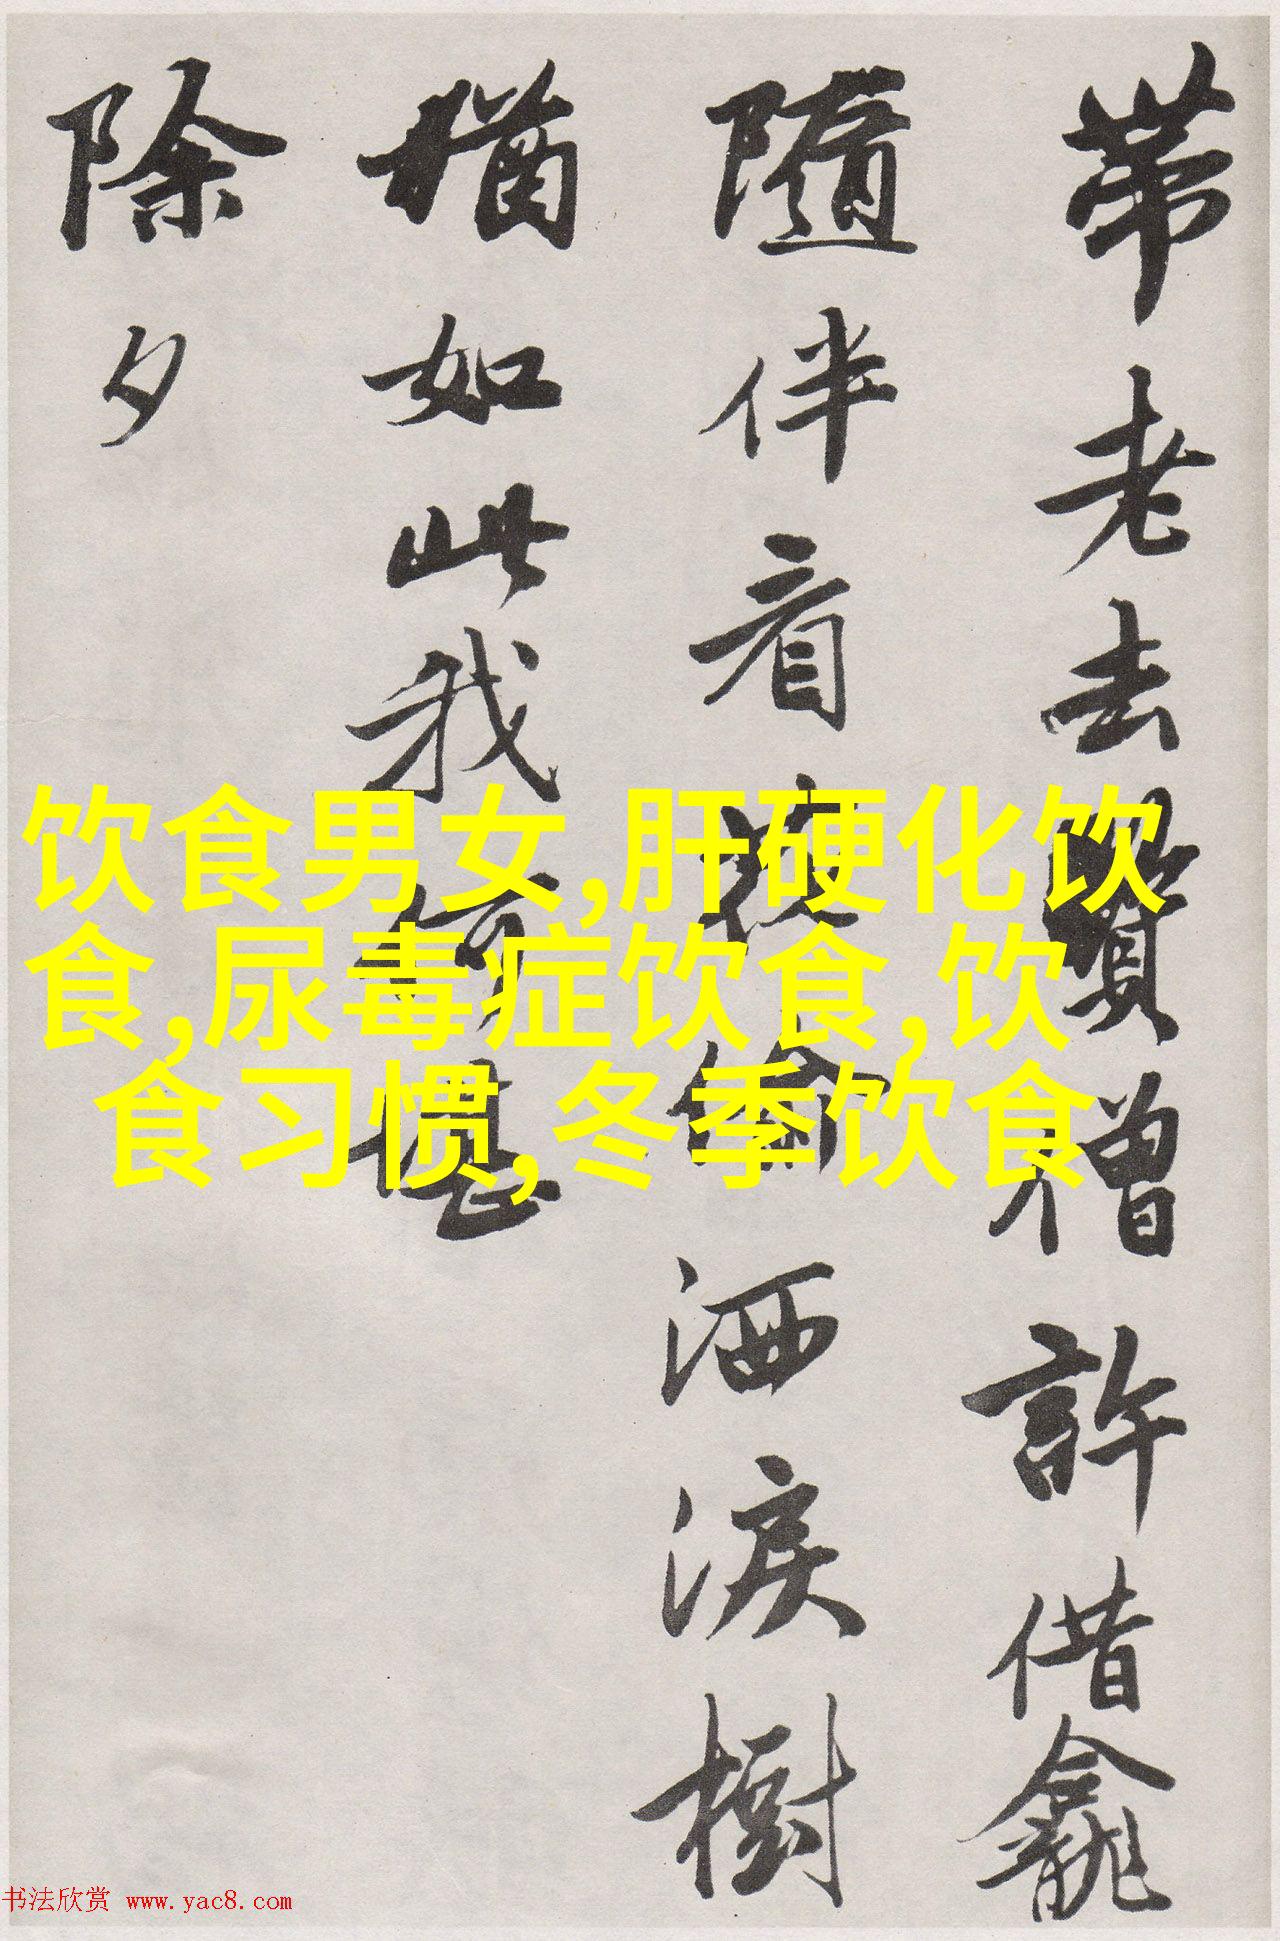 帶老去賢僧許借龕
隨伴看梅偷洒淚樹
猶如此我何堪
除夕
饮食男女,肝硬化饮
食,尿毒症饮食,饮
食习惯,冬季饮食
书法欣赏 www.yac8.com